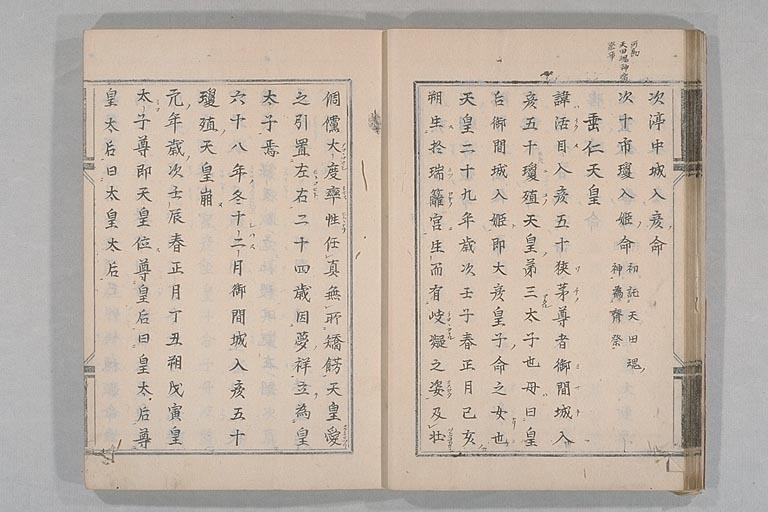 次渟中城入彦命
次十市瓊入姫命 初託天田魂
神為齊祭
垂仁天皇
諱活目入彦五十狭茅尊者御間城入
彦五十瓊殖天皇第三太子也母曰皇
后御間城入姫即大彦皇子命之女也
天皇二十九年歳次壬子春正月己亥
朔生於瑞籬宮生而有岐凝之姿及壮
倜儻大度率性任真無所矯餝天皇愛
之引置左右二十四歳因夢祥立為皇
太子焉
六十八年冬十二月御間城入彦五十
瓊殖天皇崩
元年歳次壬辰春正月丁丑朔戊寅皇
太子尊即天皇位尊皇后曰皇太后尊
皇太后曰太皇太后